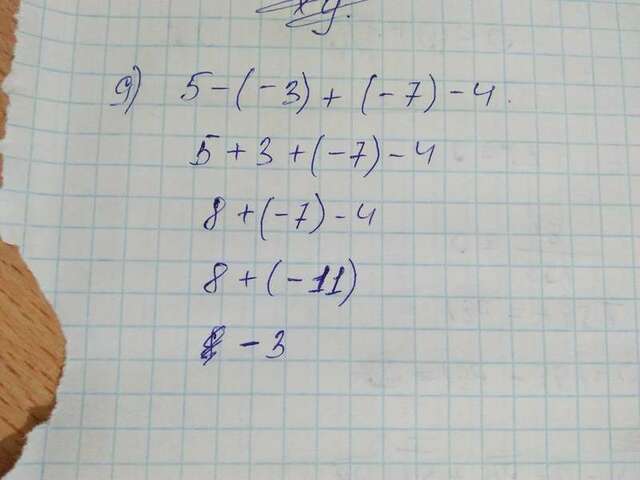 xy.
9) 5-(-3)+(-7)-4.
5+3+(-7)-4
8+(-7)-4
8+(-11)
-3